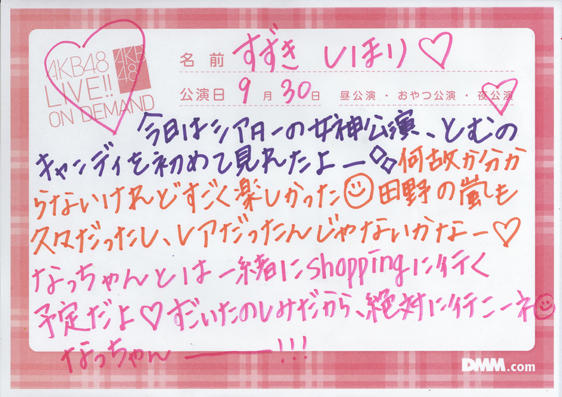 AKB48
LIVE!!
ON DEMAND
AKB
48
名前 すずき しほり♡
公演日 9月30日 昼公演・おやつ公演・夜公演
今日はシアターの女神公演、とむの
キャンディを初めて見れたよー◇◇何故か分か
らないけれどすごく楽しかった☺田野の嵐も
久々だったし、レアだったんじゃないかなー♡
なっちゃんとは一緒にshoppingに行く
予定だよ♡ずいたのしみだから、絶対に行こーネ☺
なっちゃんー!!!
DMM.com